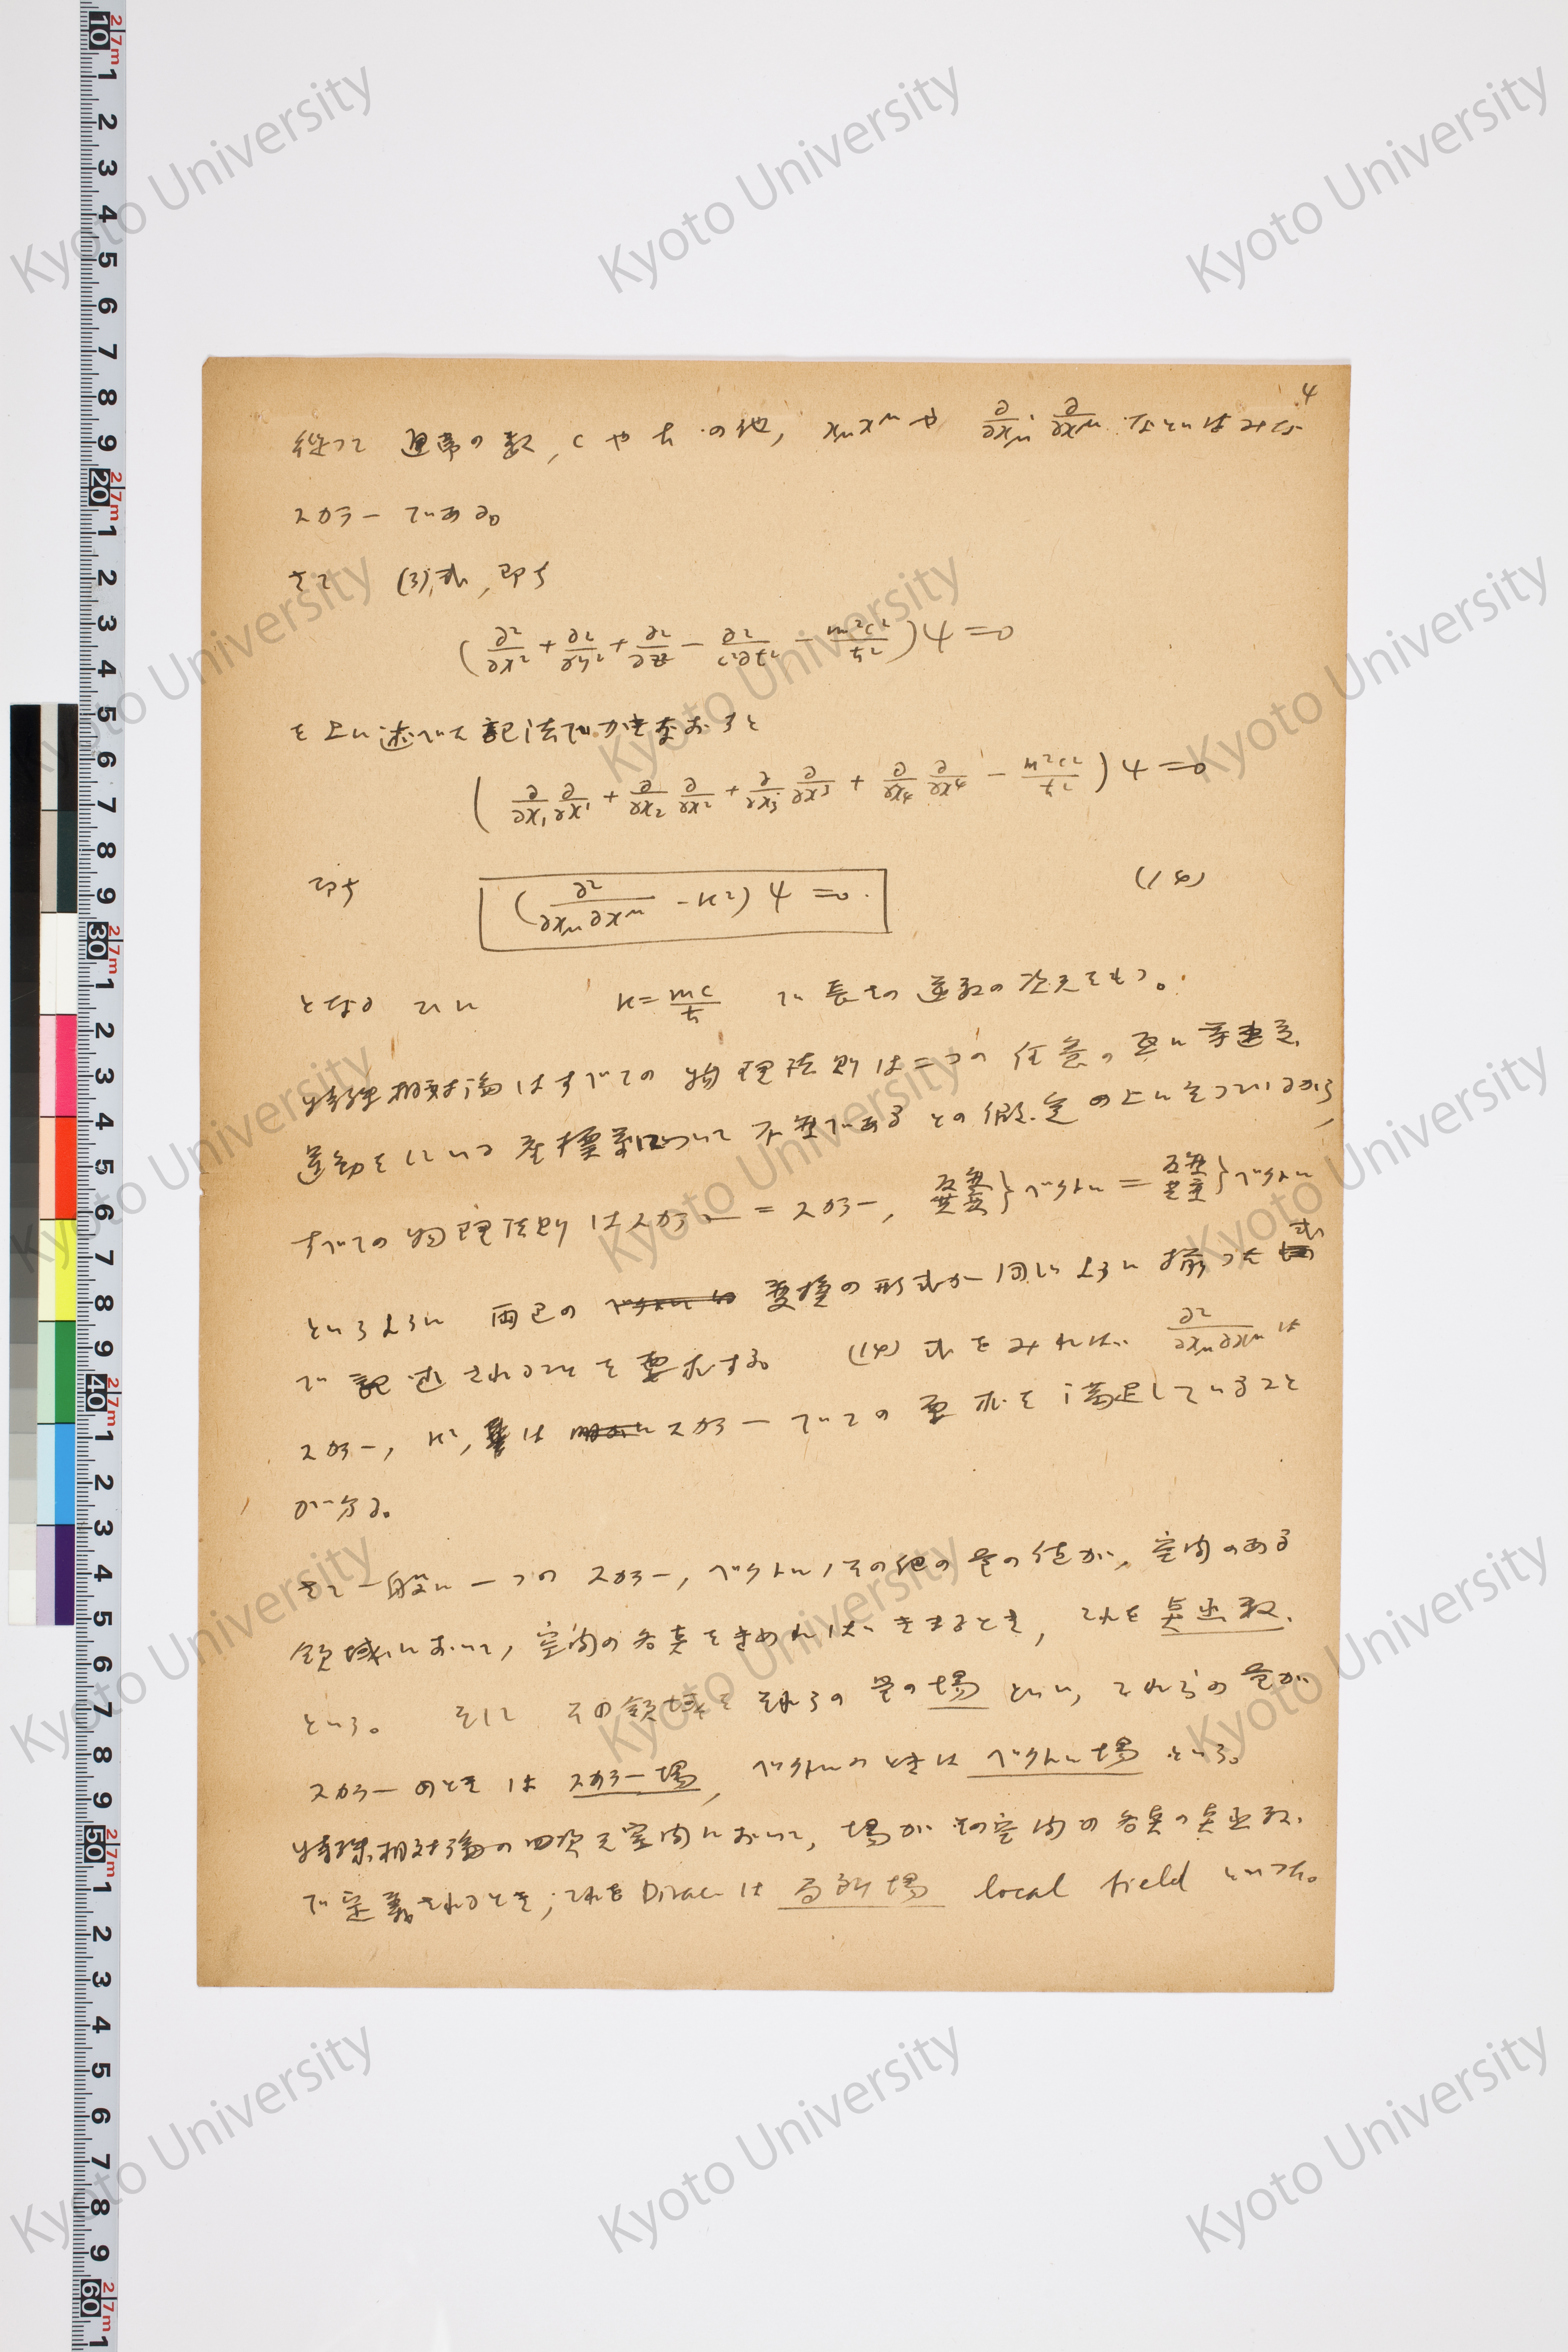 4
従つて 通常の数, c や ħ の他, x_μ x^μ や ∂/∂x_μ · ∂/∂x^μ などはみな
スカラー である。
さて (3)式, 即ち
(∂²/∂x² + ∂²/∂y² + ∂²/∂z² − ∂²/c²∂t² − m²c²/ħ²)ψ = 0
を上に述べた記法でかきなおすと
(∂/∂x₁ ∂/∂x¹ + ∂/∂x₂ ∂/∂x² + ∂/∂x₃ ∂/∂x³ + ∂/∂x₄ ∂/∂x⁴ − m²c²/ħ²)ψ = 0
即ち (∂²/∂x_μ∂x^μ − κ²)ψ = 0. (14)
となる ここに κ = mc/ħ で 長さの逆数の次元をもつ。
特殊相対論はすべての 物理法則は二つの 任意の 互に等速
運動をしている 座標系について 不変であるとの仮定の上に立つているから,
すべての物理法則はスカラー = スカラー, 反変 共変}ベクトル = 反変 共変}ベクトル
というように 両辺の 変換の形式が同じように 揃つた 式
で記述されることを要求する。 (14)式をみれば ∂²/∂x_μ∂x^μ は
スカラー, κ², は スカラー でこの要求を満足していること
が分る。
さて一般に一つの スカラー, ベクトル, その他の量の値が, 空間のある
領域において, 空間の各点をきめればきまるとき, これを 点函数
という。 その領域を それらの 量の場 といい, これらの量が
スカラーのときは スカラー場, ベクトルのときは ベクトル場 という。
特殊相対論の四次元空間において, 場がその空間の各点の点函数
で定義されるとき, これを Dirac は 局所場 local field といつた。
Kyoto University